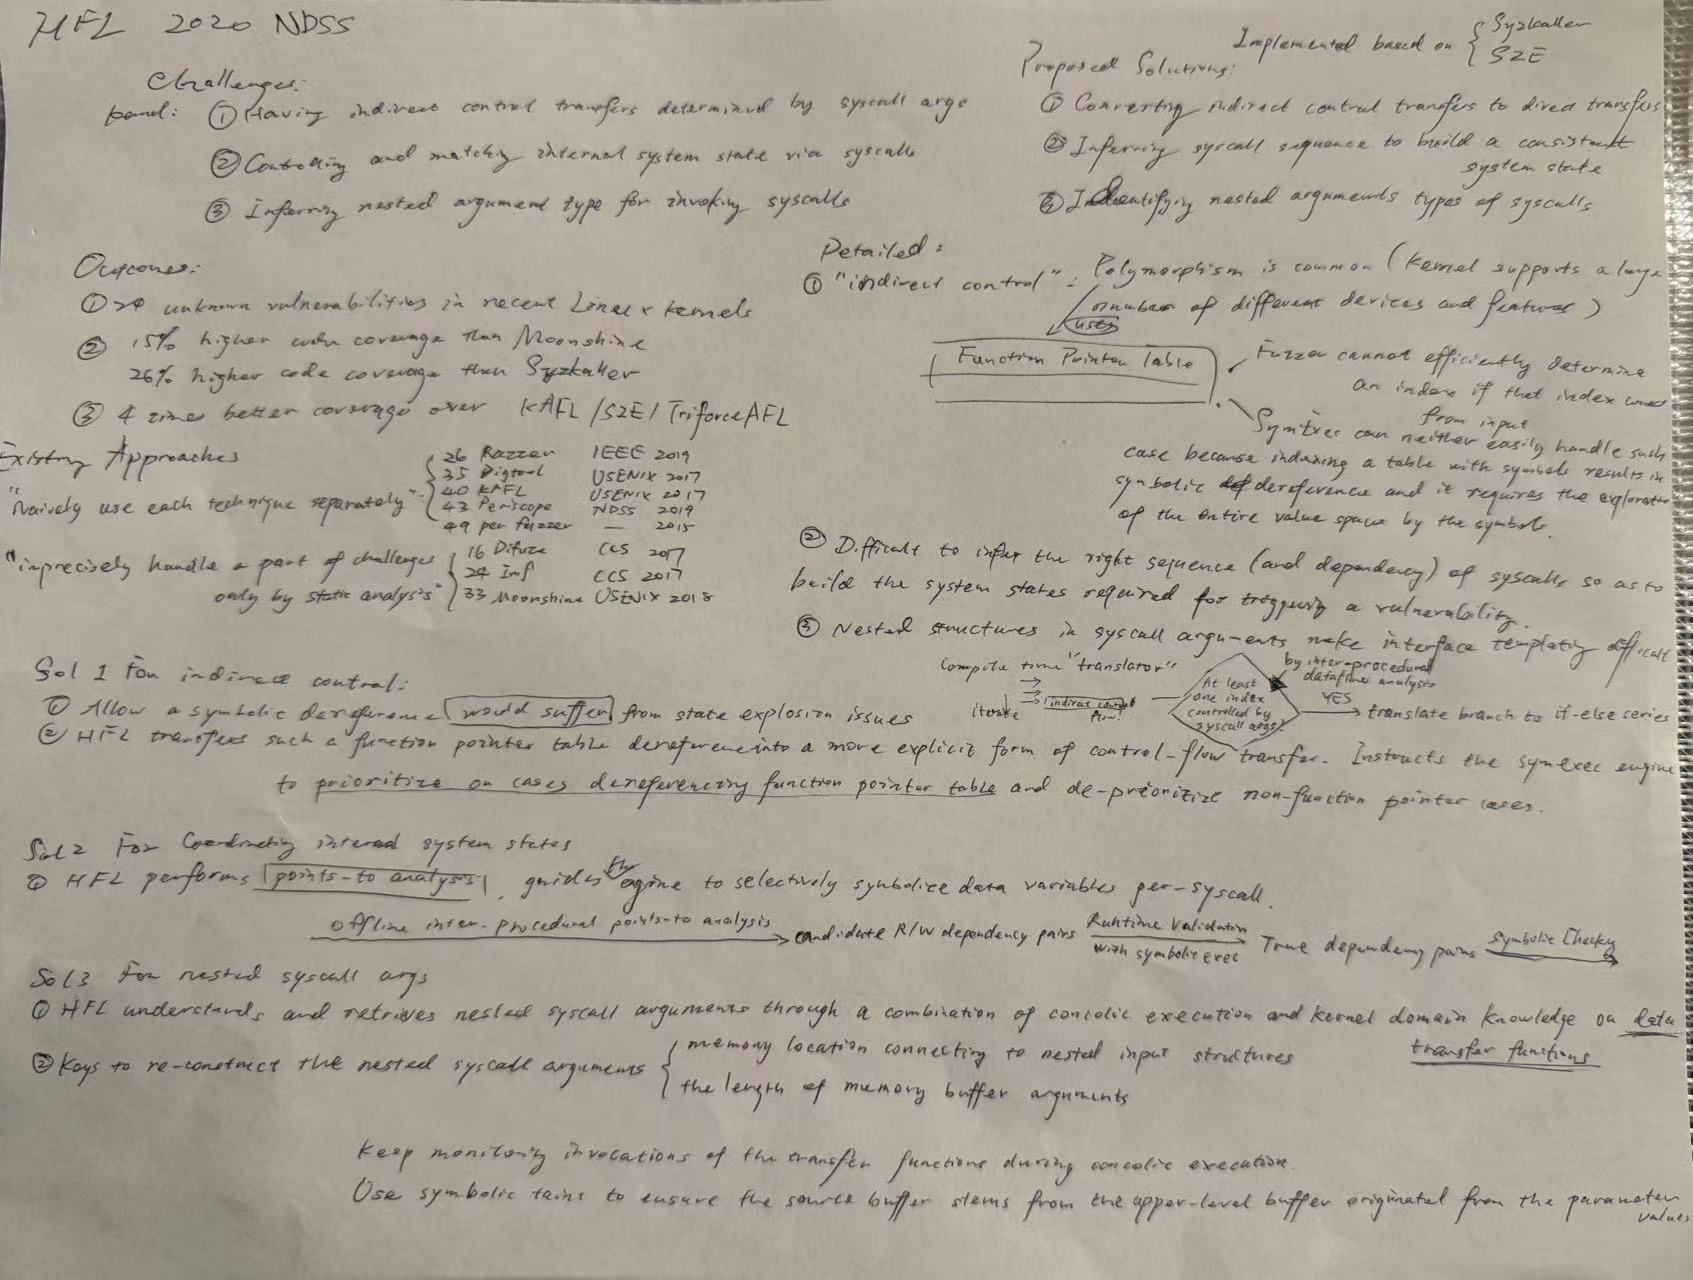 HFL 2020 NDSS
Implemented based on { Syzkaller
S2E
Challenges:
kernel: ① Having indirect control transfers determined by syscall args
② Controlling and matching internal system state via syscalls
③ Inferring nested argument type for invoking syscalls
Proposed Solutions:
① Converting indirect control transfers to direct transfers
② Inferring syscall sequence to build a consistent
system state
③ Indentifying nested arguments types of syscalls
Outcomes:
① 24 unknown vulnerabilities in recent Linux kernels
② 15% higher code coverage than Moonshine
26% higher code coverage than Syzkaller
③ 4 times better coverage over KAFL/S2E/TriforceAFL
Existing Approaches
"Naively use each technique separately"
26 Razzer IEEE 2019
35 Digtool USENIX 2017
40 KAFL USENIX 2017
43 Periscope NDSS 2019
49 perfuzzer — 2015
"imprecisely handle a part of challenges
only by static analysis"
16 Difuze CCS 2017
24 Imf CCS 2017
33 Moonshine USENIX 2018
Detailed:
① "indirect control": Polymorphism is common (kernel supports a large
number of different devices and features)
uses
Function Pointer Table
Fuzzer cannot efficiently determine
an index if that index comes
from input
Symexec can neither easily handle such
case because indexing a table with symbols results in
symbolic dereference and it requires the exploration
of the entire value space by the symbols.
② Difficult to infer the right sequence (and dependency) of syscalls so as to
build the system states required for triggering a vulnerability.
③ Nested structures in syscall arguments make interface templating difficult
Sol 1 For indirect control:
Compile time "translator"
iterate
indirect control
flow!
At least
one index
controlled by
syscall args?
by inter-procedural
dataflow analysis
YES
translate branch to if-else series
① Allow a symbolic dereference would suffer from state explosion issues
② HFL transfers such a function pointer table dereference into a more explicit form of control-flow transfer. Instructs the symexec engine
to prioritize on cases dereferencing function pointer table and de-prioritize non-function pointer cases.
Sol 2 For Coordinating internal system states
① HFL performs points-to analysis, guides the egine to selectively symbolize data variables per-syscall.
offline inter-procedural points-to analysis
candidate R/W dependency pairs
Runtime Validation
with symbolic exec
True dependency pairs
symbolic Checking
Sol 3 For nested syscall args
① HFL understands and retrieves nested syscall arguments through a combination of concolic execution and kernel domain knowledge on data
transfer functions
② Keys to re-construct the nested syscall arguments { memory location connecting to nested input structures
the length of memory buffer arguments
Keep monitoring invocations of the transfer functions during concolic execution.
Use symbolic taint to ensure the source buffer stems from the upper-level buffer originated from the parameter
values